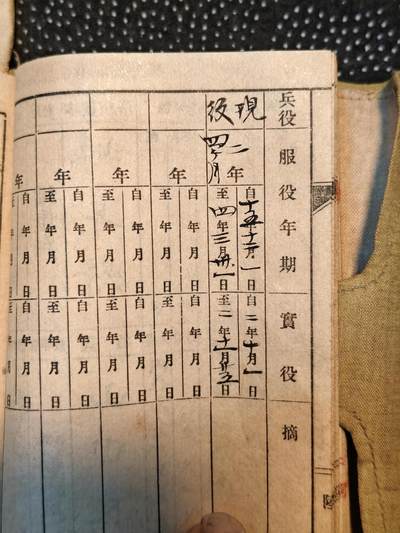 兵役 服役年期 實役 摘
現役
二年四ヶ月
自十五年十二月一日
至四年三月卅一日
自二年十月一日
至二年十一月廿五日
年
自 年 月 日
至 年 月 日
自 年 月 日
至 年 月 日
年
自 年 月 日
至 年 月 日
自 年 月 日
至 年 月 日
年
自 年 月 日
至 年 月 日
自 年 月 日
至 年 月 日
年
自 年 月 日
至 年 月 日
自 年 月 日
至 年 月 日